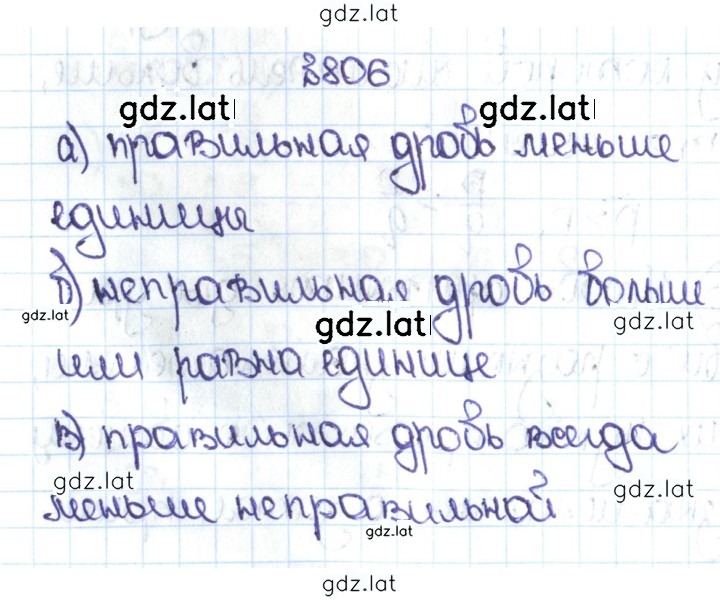 gdz.lat
№806
gdz.lat gdz.lat
а) правильная дробь меньше
единицы
б) неправильная дробь больше
gdz.lat gdz.lat gdz.lat
или равна единице
в) правильная дробь всегда
gdz.lat gdz.lat
меньше неправильной
gdz.lat
gdz.lat